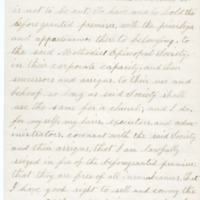 is not to be cut. To have and to hold the
before granted premises, with the privileges
and appurtenances there to belonging, to
the said Methodist Episcopal Society,
in their corporate capacity, and their
successors and assigns, to their use and
behoof, so long as said Society shall
use the same for a church; and I do,
for myself, my heirs, executors, and adm-
inistrators, covenant with the said Society
and their assigns, that I am lawfully
seized in fee of the before granted premises;
that they are free of all incumbrances; that
I have good right to sell and convey the